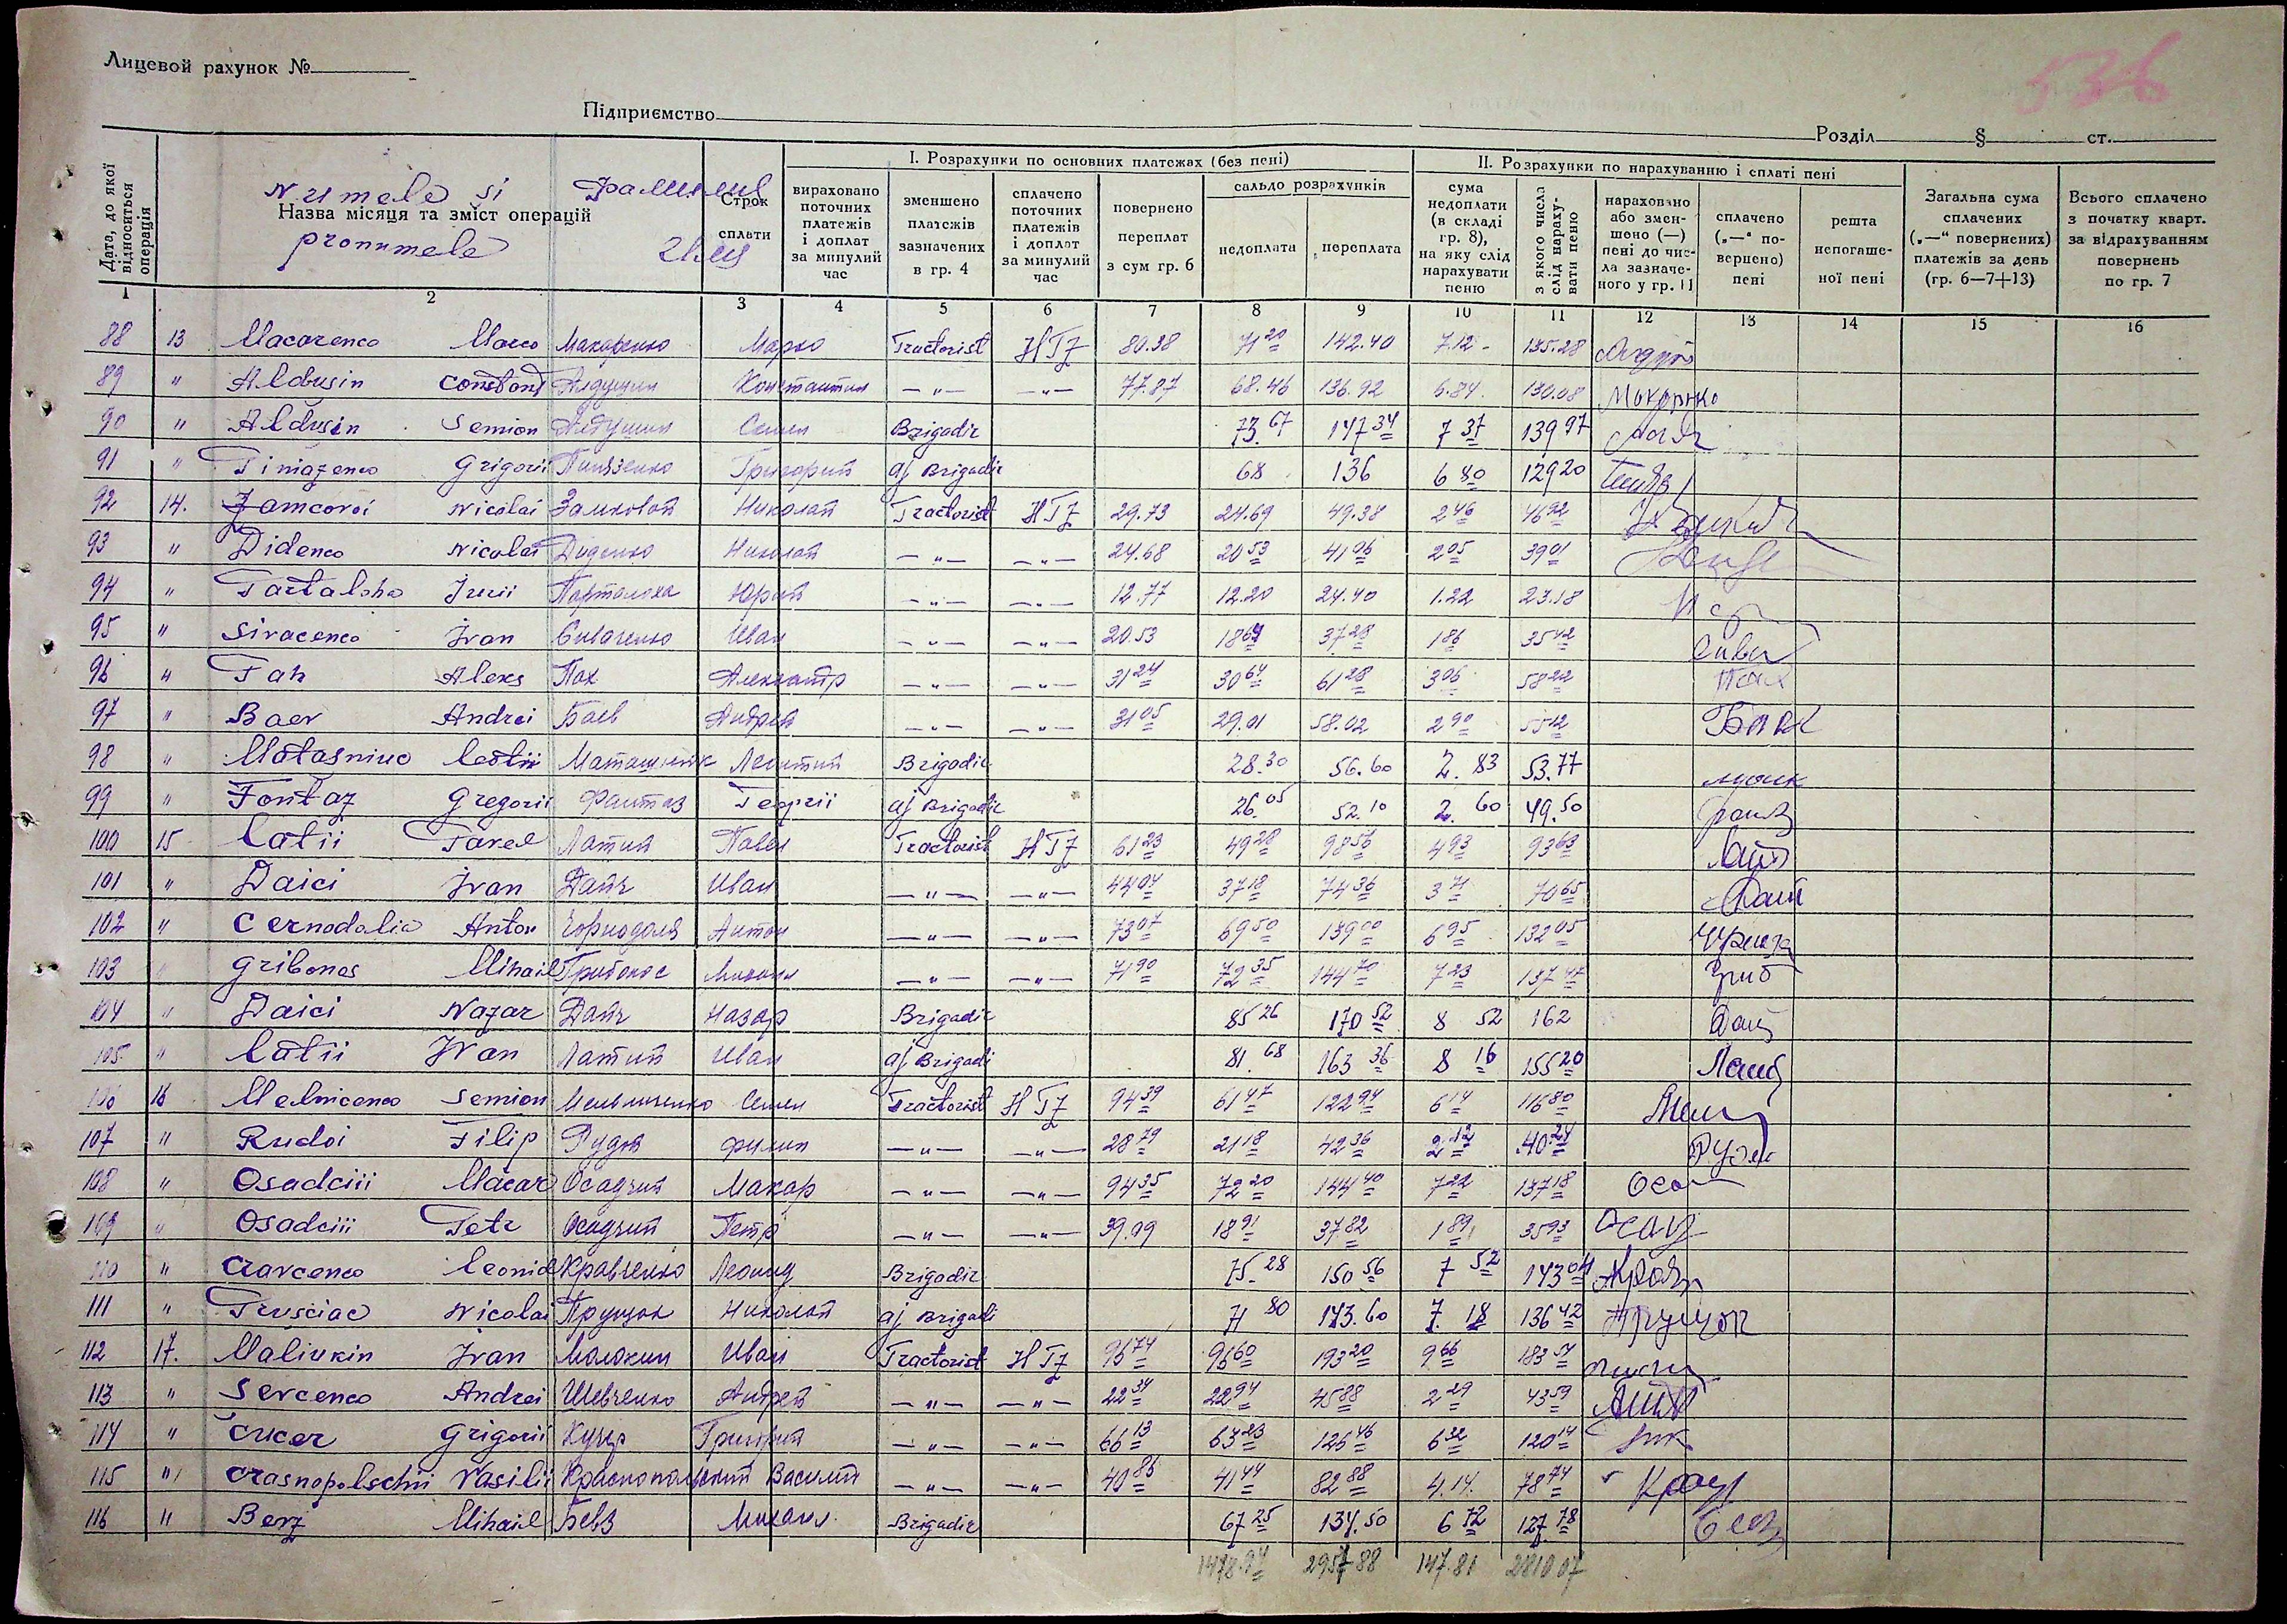 Лицевой рахунок №
536
Підприємство
Розділ § ст.
Дата, до якої відноситься операція
Numele si Фамилия
Назва місяця та зміст операцій
pronumele
Строк сплати
I. Розрахунки по основних платежах (без пені)
вираховано поточних платежів і доплат за минулий час
зменшено платежів зазначених в гр. 4
сплачено поточних платежів і доплат за минулий час
повернено переплат з сум гр. 6
сальдо розрахунків
недоплата переплата
II. Розрахунки по нарахуванню і сплаті пені
сума недоплати (в складі гр. 8), на яку слід нарахувати пеню
з якого числа слід нарахувати пеню
нараховано або зменшено (—) пені до числа зазначеного у гр. 11
сплачено („—“ повернено) пені
решта непогашеної пені
Загальна сума сплачених („—“ повернених) платежів за день (гр. 6—7+13)
Всього сплачено з початку кварт. за відрахуванням повернень по гр. 7
1 2 3 4 5 6 7 8 9 10 11 12 13 14 15 16
88 13 Macarenco Marco Макаренко Марко Tractorist НТЗ 80.38 71 20 142.40 7.12 135.28
89 " Aldusin Constant Алдушин Константин —"— —"— 77.87 68.46 136.92 6.84 130.08
90 " Aldusin Semion Алдушин Семен Brigadir 73.67 147 34 7 37 139 97
91 " Piniazenco Grigorii Пинязенко Григорий aj Brigadir 68 136 6 80 129 20
92 14. Zamcovoi Nicolai Замковой Николай Tractorist НТЗ 29.73 24.69 49.38 2 46 46 92
93 " Didenco Nicolai Диденко Николай —"— —"— 24.68 20 53 41 06 2 05 39 01
94 " Partaloha Jurii Парталоха Юрий —"— —"— 12.77 12.20 24.40 1.22 23.18
95 " Sivacenco Ivan Сиваченко Иван —"— —"— 20.53 18 64 37 28 1 86 35 42
96 " Pah Alexs Пах Александр —"— —"— 31 24 30 64 61 28 3 06 58 22
97 " Baev Andrei Баев Андрей —"— —"— 31 05 29.01 58.02 2 90 55 12
98 " Matasniuc Leotii Маташнюк Леонтий Brigadir 28.30 56.60 2.83 53.77
99 " Fontaz Gregorii Фантаз Георгii aj Brigadir 26.05 52.10 2.60 49.50
100 15 Latii Pavel Латий Павел Tractorist НТЗ 61 23 49 28 98 56 4 93 93 63
101 " Daici Ivan Дайч Иван —"— —"— 44 04 37 18 74 36 3 71 70 65
102 " Cernodolia Anton Чорнодоля Антон —"— —"— 73 07 69 50 139 00 6 95 132 05
103 " Gribonos Mihail Грибонос Михаил —"— —"— 71 90 72 35 144 70 7 23 137 47
104 " Daici Nazar Дайч Назар Brigadir 85 26 170 52 8 52 162
105 " Latii Ivan Латий Иван aj Brigadi 81.68 163 36 8 16 155 20
106 16 Melnicenco Semion Мельниченко Семен Tractorist НТЗ 94 39 61 47 122 94 6 14 116 80
107 " Rudoi Filip Рудой Филип —"— —"— 28 79 21 18 42 36 2 12 40 24
108 " Osadciii Macar Осадчий Макар —"— —"— 94 35 72 20 144 40 7 22 137 18
109 " Osadciii Petr Осадчий Петр —"— —"— 39.09 18 91 37 82 1 89 35 93
110 " Cravcenco Leonid Кравченко Леонид Brigadir 75.28 150 56 7 52 143 04
111 " Prusciac Nicolai Прущак Николай aj Brigadi 71 80 143.60 7.18 136 42
112 17. Maliukin Ivan Малюкин Иван Tractorist НТЗ 96 74 96 60 193 20 9 66 183 54
113 " Sevcenco Andrei Шевченко Андрей —"— —"— 22 34 22 94 45 88 2 29 43 59
114 " Cucer Grigorii Кучер Григорий —"— —"— 66 13 63 23 126 46 6 32 120 14
115 " Crasnopolschii Vasilii Краснопольский Василий —"— —"— 40 86 41 44 82 88 4.14. 78 74
116 " Bevz Mihail Бевз Михаил Brigadir 67 25 134.50 6 72 127 78
1478.94 2957 88 147.81 2810 07